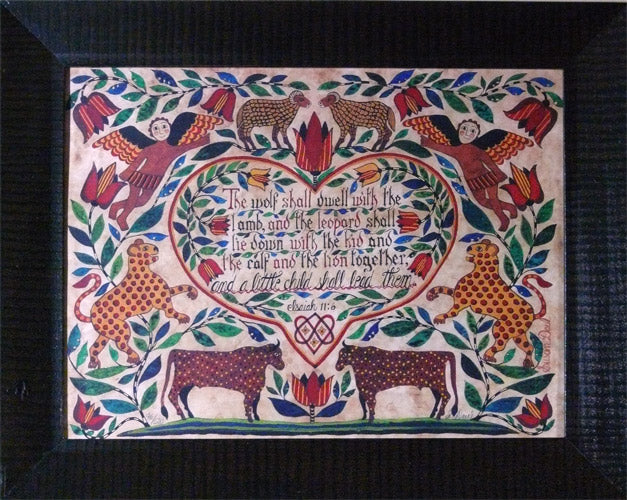 The wolf shall dwell with the
lamb, and the leopard shall
lie down with the kid and
the calf and the lion together,
and a little child shall lead them.
Isaiah 11:6